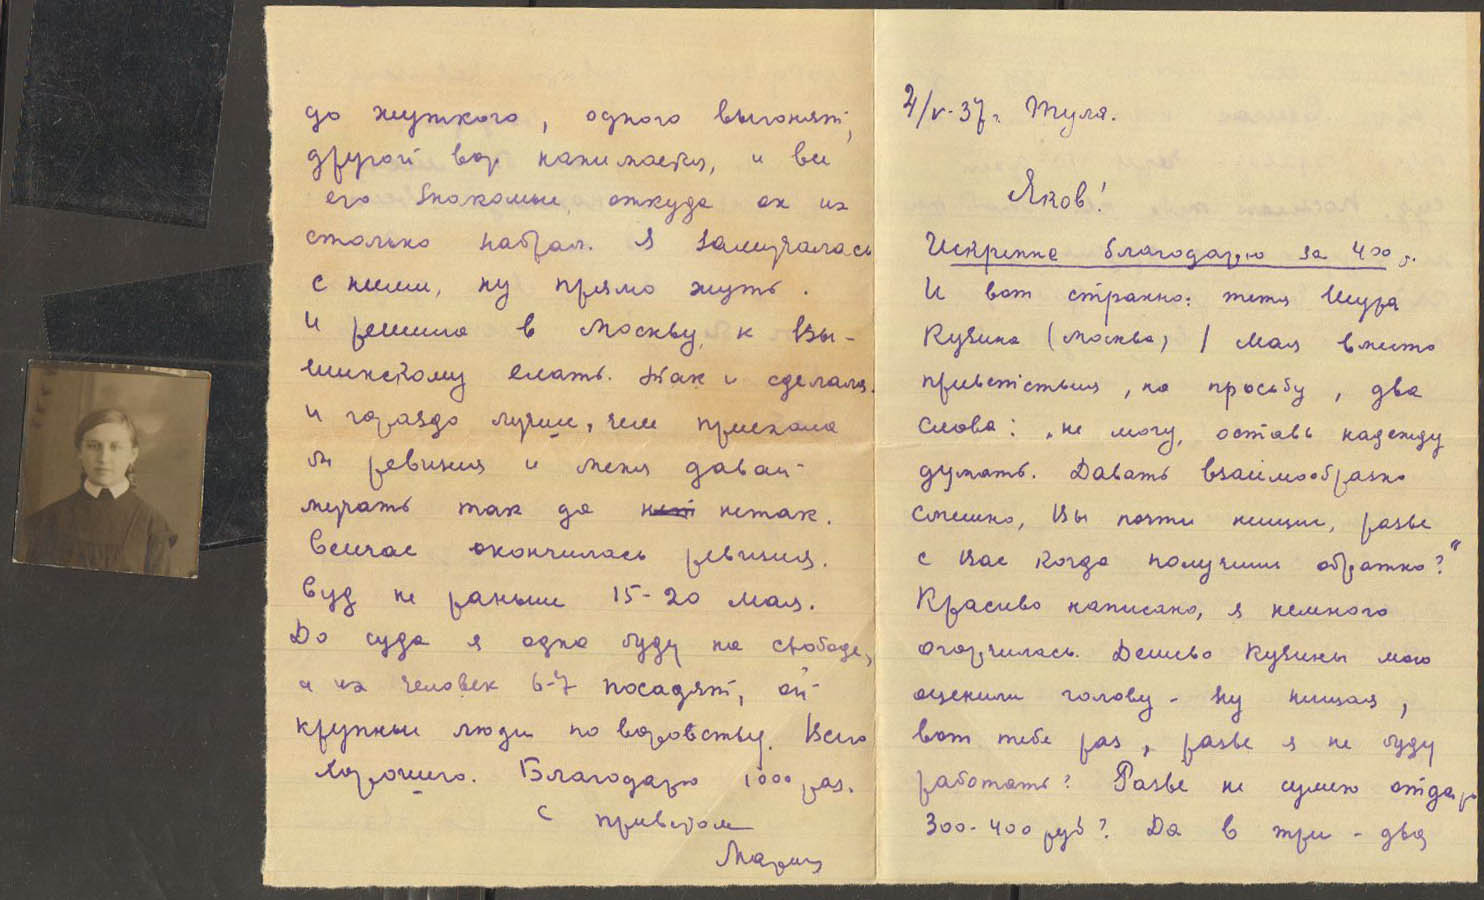 4/V-37г. Тула.
Яков!
Искренне благодарю за 400 р.
И вот странно: тетя Шура
Кузина (Москва) 1 мая вместо
приветствия, на просьбу, два
слова: „не могу, оставь надежду
думать. Давать взаимообразно
смешно, Вы почти нищие, разве
с Вас когда получишь обратно?"
Красиво написано, я немного
огорчилась. Дешево Кузины мою
оценили голову - ну нищая,
вот тебе раз, разве я не буду
работать? Разве не сумею отдать
300-400 руб? Да в три-два
до жуткого, одного выгонят,
другой вор нанимается, и все
его знакомые, откуда он их
столько набрал. Я замучалась
с ними, ну прямо жуть.
И решила в Москву, к Вы-
шинскому ехать. Так и сделала.
и гораздо лучше, чем приехала
ревизия и меня давай
мучать так да не так.
Сейчас окончилась ревизия.
Суд не раньше 15-20 мая.
До суда я одна буду на свободе,
а их человек 6-7 посадят, ой
крупные люди по воровству. Всего
хорошего. Благодарю 1000 раз.
С приветом
Мария